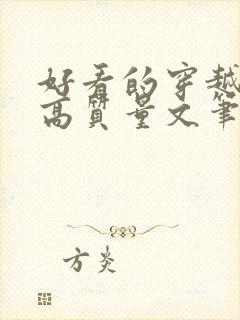 好看的穿越
高质量文笔
方炎